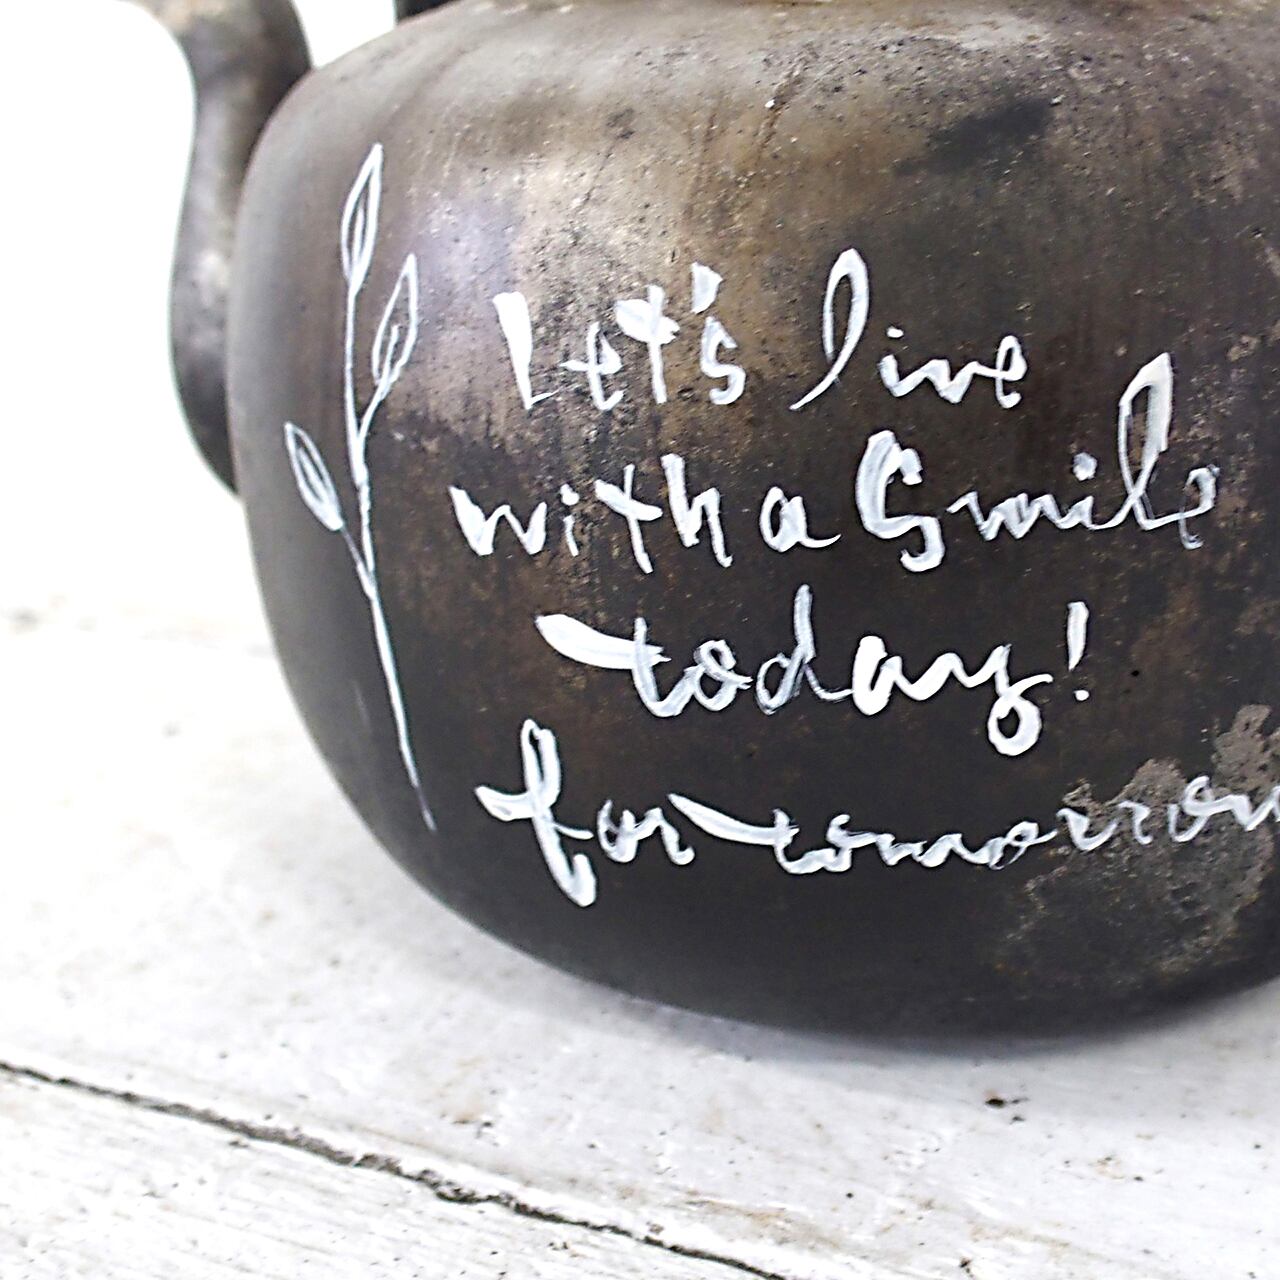 Let's live
with a Smile
today!
for tomorrow